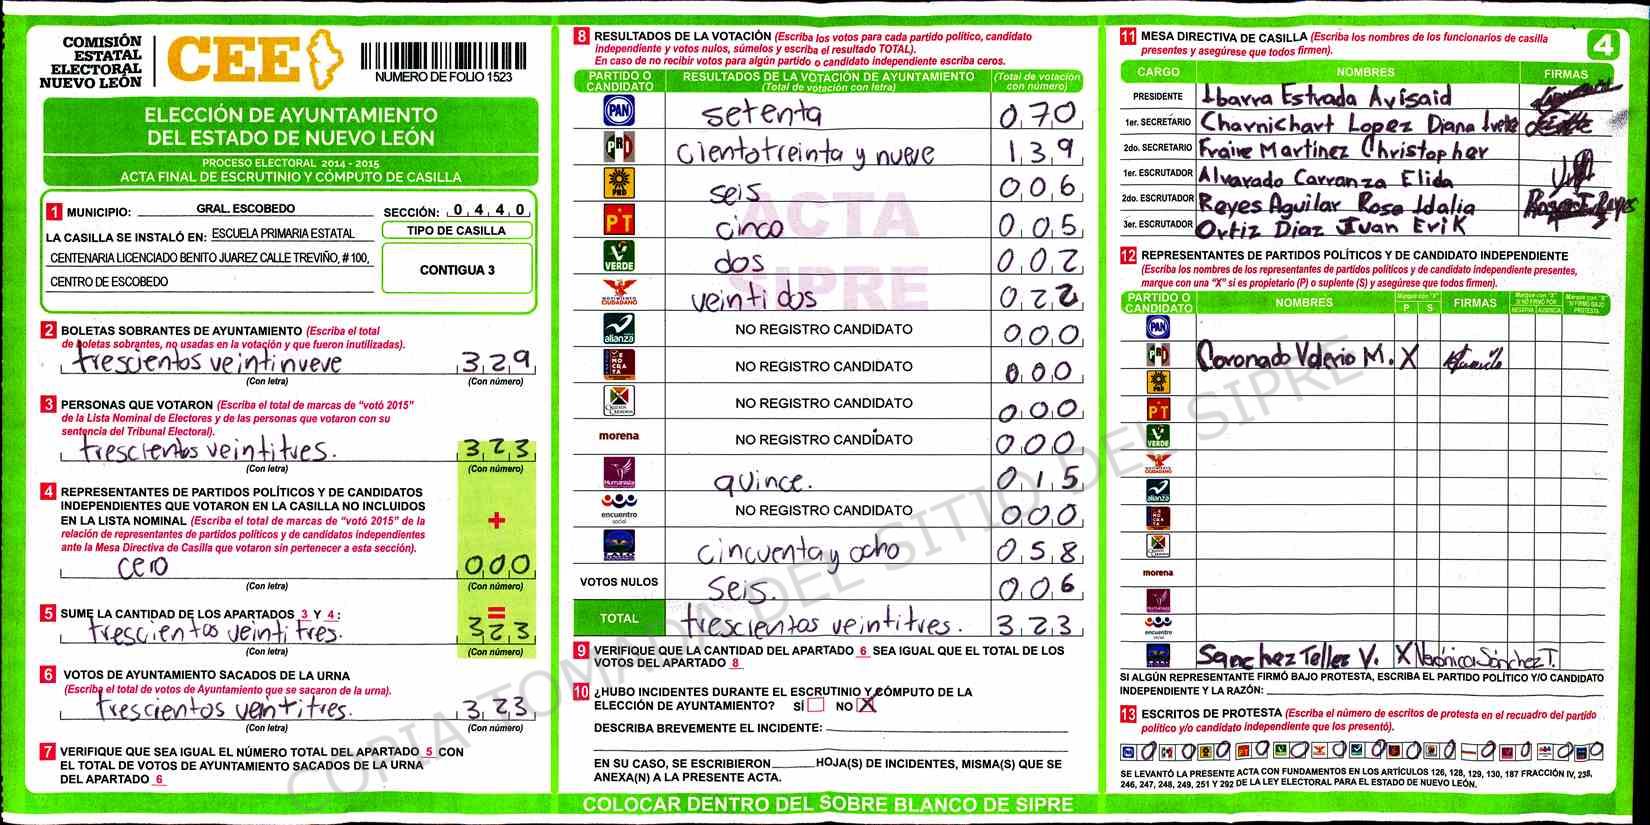 COMISIÓN
ESTATAL
ELECTORAL
NUEVO LEÓN
CEE
NUMERO DE FOLIO 1523
ELECCIÓN DE AYUNTAMIENTO
DEL ESTADO DE NUEVO LEÓN
PROCESO ELECTORAL 2014 - 2015
ACTA FINAL DE ESCRUTINIO Y CÓMPUTO DE CASILLA
1 MUNICIPIO: GRAL. ESCOBEDO SECCIÓN: 0 4 4 0
LA CASILLA SE INSTALÓ EN: ESCUELA PRIMARIA ESTATAL
CENTENARIA LICENCIADO BENITO JUAREZ CALLE TREVIÑO, # 100,
CENTRO DE ESCOBEDO
TIPO DE CASILLA
CONTIGUA 3
2 BOLETAS SOBRANTES DE AYUNTAMIENTO (Escriba el total
de boletas sobrantes, no usadas en la votación y que fueron inutilizadas).
trescientos veintinueve 3 2 9
(Con letra) (Con número)
3 PERSONAS QUE VOTARON (Escriba el total de marcas de "votó 2015"
de la Lista Nominal de Electores y de las personas que votaron con su
sentencia del Tribunal Electoral).
trescientos veintitres. 3 2 3
(Con letra) (Con número)
4 REPRESENTANTES DE PARTIDOS POLÍTICOS Y DE CANDIDATOS
INDEPENDIENTES QUE VOTARON EN LA CASILLA NO INCLUIDOS
EN LA LISTA NOMINAL (Escriba el total de marcas de "votó 2015" de la
relación de representantes de partidos políticos y de candidatos independientes
ante la Mesa Directiva de Casilla que votaron sin pertenecer a esta sección).
+
cero 0 0 0
(Con letra) (Con número)
5 SUME LA CANTIDAD DE LOS APARTADOS 3 Y 4: =
trescientos veintitres. 3 2 3
(Con letra) (Con número)
6 VOTOS DE AYUNTAMIENTO SACADOS DE LA URNA
(Escriba el total de votos de Ayuntamiento que se sacaron de la urna).
trescientos veintitres. 3 2 3
(Con letra) (Con número)
7 VERIFIQUE QUE SEA IGUAL EL NÚMERO TOTAL DEL APARTADO 5 CON
EL TOTAL DE VOTOS DE AYUNTAMIENTO SACADOS DE LA URNA
DEL APARTADO 6
8 RESULTADOS DE LA VOTACIÓN (Escriba los votos para cada partido político, candidato
independiente y votos nulos, súmelos y escriba el resultado TOTAL).
En caso de no recibir votos para algún partido o candidato independiente escriba ceros.
PARTIDO O CANDIDATO RESULTADOS DE LA VOTACIÓN DE AYUNTAMIENTO (Total de votación con letra) (Total de votación con número)
PAN setenta 0 7 0
PRI ciento treinta y nueve 1 3 9
PRD seis 0 0 6
PT cinco 0 0 5
VERDE dos 0 0 2
MOVIMIENTO CIUDADANO veintidos 0 2 2
alianza NO REGISTRO CANDIDATO 0 0 0
DEMOCRATA NO REGISTRO CANDIDATO 0 0 0
NO REGISTRO CANDIDATO 0 0 0
morena NO REGISTRO CANDIDATO 0 0 0
Humanista quince. 0 1 5
encuentro social NO REGISTRO CANDIDATO 0 0 0
cincuenta y ocho 0 5 8
VOTOS NULOS seis. 0 0 6
TOTAL trescientos veintitres. 3 2 3
ACTA
SIPRE
9 VERIFIQUE QUE LA CANTIDAD DEL APARTADO 6 SEA IGUAL QUE EL TOTAL DE LOS
VOTOS DEL APARTADO 8
10 ¿HUBO INCIDENTES DURANTE EL ESCRUTINIO Y CÓMPUTO DE LA
ELECCIÓN DE AYUNTAMIENTO? SÍ NO X
DESCRIBA BREVEMENTE EL INCIDENTE:
EN SU CASO, SE ESCRIBIERON HOJA(S) DE INCIDENTES, MISMA(S) QUE SE
ANEXA(N) A LA PRESENTE ACTA.
COLOCAR DENTRO DEL SOBRE BLANCO DE SIPRE
11 MESA DIRECTIVA DE CASILLA (Escriba los nombres de los funcionarios de casilla
presentes y asegúrese que todos firmen).
4
CARGO NOMBRES FIRMAS
PRESIDENTE Ibarra Estrada Avisaid
1er. SECRETARIO Charnichart Lopez Diana Ivete
2do. SECRETARIO Fraire Martinez Christopher
1er. ESCRUTADOR Alvarado Carranza Elida
2do. ESCRUTADOR Reyes Aguilar Rosa Idalia
3er. ESCRUTADOR Ortiz Diaz Juan Erik
12 REPRESENTANTES DE PARTIDOS POLÍTICOS Y DE CANDIDATO INDEPENDIENTE
(Escriba los nombres de los representantes de partidos políticos y de candidato independiente presentes,
marque con una "X" si es propietario (P) o suplente (S) y asegúrese que todos firmen).
PARTIDO O CANDIDATO NOMBRES Marque con "X" P S FIRMAS Marque con "X" SI NO FIRMÓ POR NEGATIVA AUSENCIA Marque con "X" SI FIRMÓ BAJO PROTESTA
PAN
PRI Coronado Valerio M. X
PRD
PT
VERDE
MOVIMIENTO CIUDADANO
alianza
morena
Humanista
encuentro social
Sanchez Tellez V. X Verónica Sánchez T.
SI ALGÚN REPRESENTANTE FIRMÓ BAJO PROTESTA, ESCRIBA EL PARTIDO POLÍTICO Y/O CANDIDATO
INDEPENDIENTE Y LA RAZÓN:
13 ESCRITOS DE PROTESTA (Escriba el número de escritos de protesta en el recuadro del partido
político y/o candidato independiente que los presentó).
0 0 0 0 0 0 0 0 0 0 0 0 0
SE LEVANTÓ LA PRESENTE ACTA CON FUNDAMENTOS EN LOS ARTÍCULOS 126, 128, 129, 130, 187 FRACCIÓN IV, 238,
246, 247, 248, 249, 251 Y 292 DE LA LEY ELECTORAL PARA EL ESTADO DE NUEVO LEÓN.
COPIA TOMADA DEL SITIO DEL SIPRE